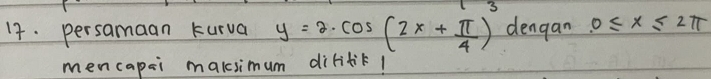 17. persamaan kurva y = 2. cos (2x + π/4) dengan 0 ≤ x ≤ 2π
mencapai maksimum dititik !